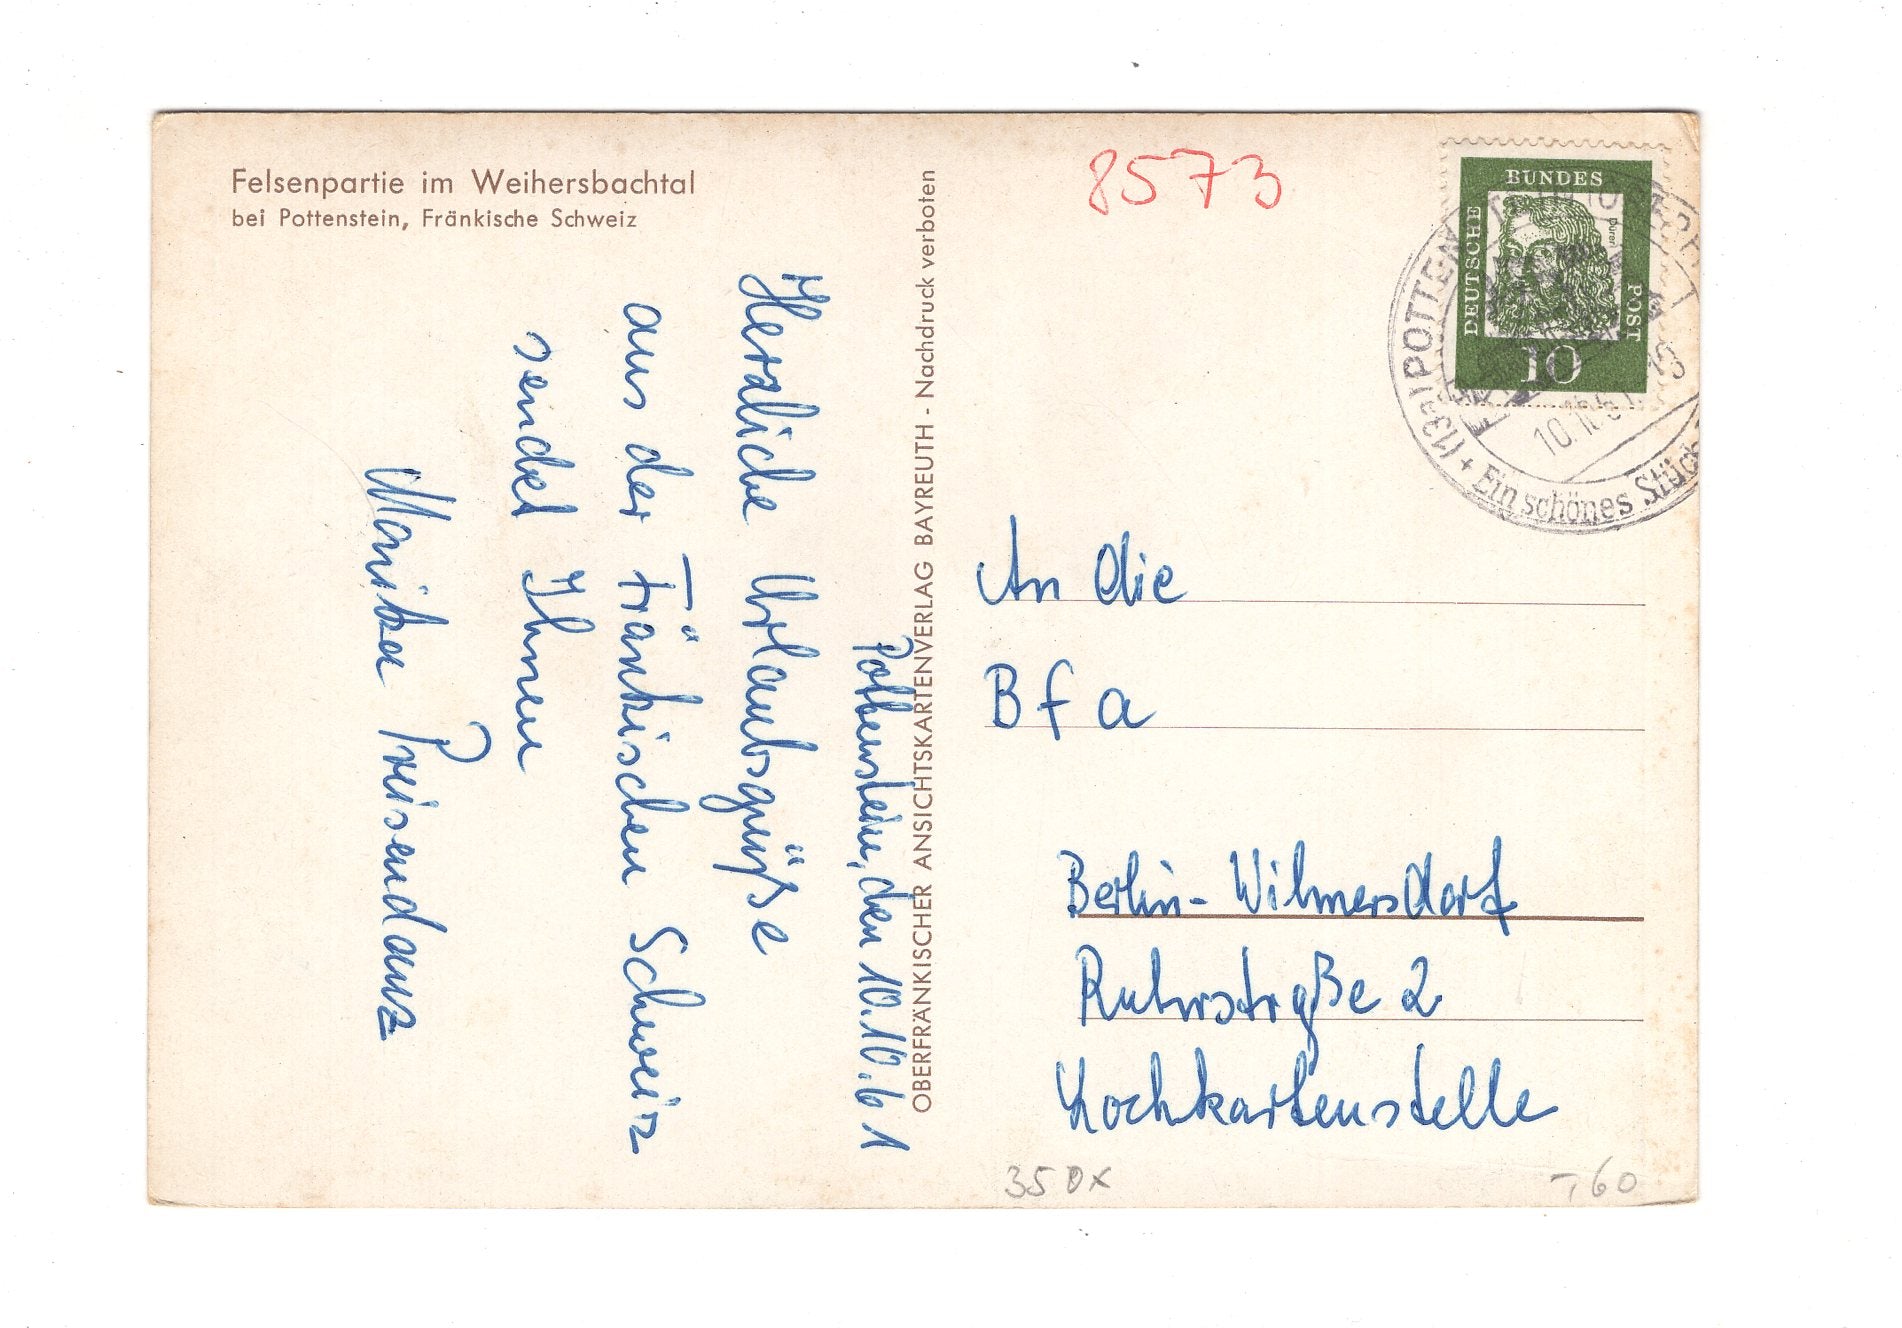 Felsenpartie im Weihersbachtal
bei Pottenstein, Fränkische Schweiz
8573
BUNDES
DEUTSCHE
POST
Dürer
10
(13a) POTTEN
10.10.61
+ Ein schönes Stück
OBERFRÄNKISCHER ANSICHTSKARTENVERLAG BAYREUTH - Nachdruck verboten
Pottenstein, den 10.10.61
Herzliche Urlaubsgrüße
aus der Fränkischen Schweiz
sendet Ihnen
Monika Preisendanz
An die
B f a
Berlin-Wilmersdorf
Ruhrstraße 2
Lochkartenstelle
35 DX
-,60